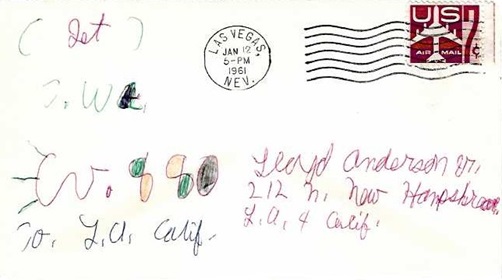 (Jet)
LAS VEGAS,
JAN 12
5-PM
1961
NEV.
US 7¢
AIR MAIL
T.W.A.
CV. 880
To. L.A. Calif.
Lloyd Anderson Jr.
212 N. New Hampshire
L.A. 4 Calif.